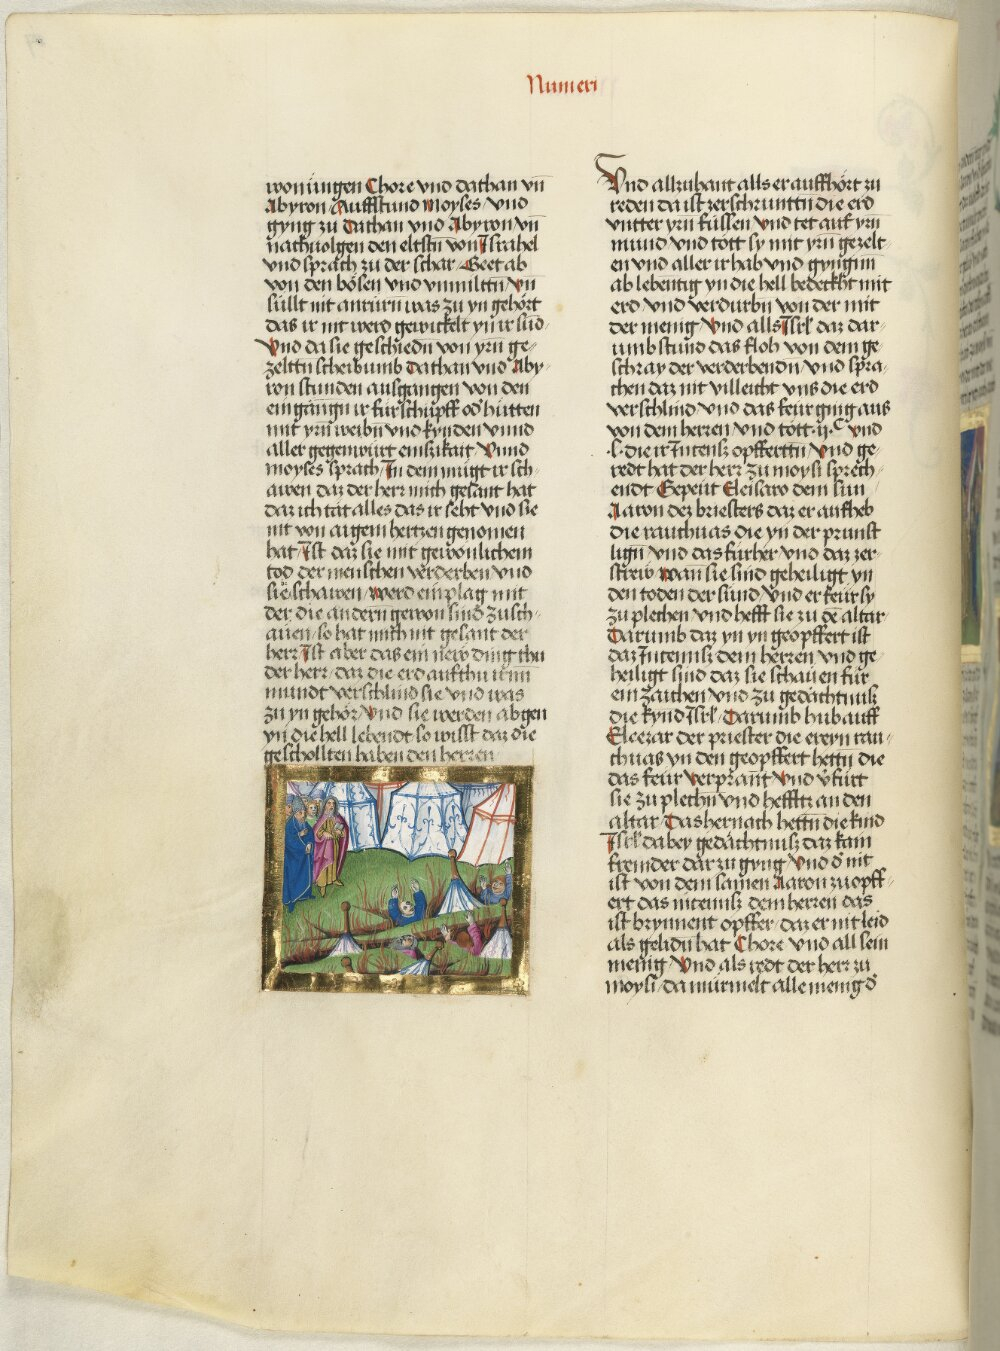 Numeri
wonungen Chore vnd dathan vn̄
Abyron Aufstund Moyses / vnd
gyng zu Dathan vnd Abyron vn̄
nachuolgen den eltstn̄ von Israhel
vnd sprach zu der schar / Geet ab
von den bösen vnd vnmilttn̄ / vn̄
süllt nit anrürn̄ was zu yn gehört
das ir nit werd gewickelt yn ir sūd /
Vnd da sie geschiedn̄ von yrn̄ ge /
zeltn̄ scheibumb Dathan vnd Aby /
ron stunden ausgangen von den
eingängn̄ ir fürschüpff od̄ hütten
mit yrn̄ weibn̄ vnd kynden vnnd
aller gegenwürt einszikait / Vnnd
moyses sprach / In dem mügt ir sch /
awen daz der herr mich gesant hat
daz ich tät alles das ir seht vnd sie
nit von aigem hertzen genomen
hat / Ist daz sie mit gewonlichem
tod der menschen verderben / vnd
sie schawen / werd ein plag mit
der die andern gewon sind zusch /
auen / so hat mich nit gesant der
herr / Ist aber das ein new ding thu
der herr / daz die erd aufthu irnn
mundt verschlind sie vnd was
zu yn gehör / Vnd sie werden abgen
yn die hell lebendt so wisst daz die
geschollten haben den herren
Vnd allzuhant alls er auffhört zu
reden da ist zerschrunttn̄ die erd
vntter yrn̄ füssen / Vnd tet auf yrn̄
mund / vnd tött sy mit yrn̄ gezelt /
en vnd aller ir hab vnd gyngnn̄
ab lebentig yn die hell bedeckht mit
erd / vnd verdurbn̄ von der mit
der menig / Vnd alls Isrl̄ daz dar /
umb stund das floh von dem ge /
schray der verderbendn̄ / vnd spra /
chen daz nit villeicht vns die erd
verschlind / vnd das feür ging aus
von dem herren / vnd tött · ij · C vnd
· l · die ir Intensz opffertn̄ / Vnd ge /
redt hat der herr zu moysi sprech /
endt / Gepeut Eleisaro dem sun /
Aaron dez briesters daz er aufheb
die rauchuas die yn der prunst
lign̄ / vnd das fürher / vnd daz zer /
strew / wan sie sind geheiligt yn
den toden der sünd / vnd er feür sy
zu plechen / vnd hefft sie zu dē altar /
Darumb daz yn yn geopffert ist
daz Intennsz dem herren / vnd ge /
heiligt sind daz sie schauen für
ein zaichen vnd zu gedächtnusz
die kynd Isrl̄ / Darumb hub auff
Eleezar der priester die ereyn rau /
chuas yn den geopffert hettn̄ die
das feür verprant / Vnd v̄fürt
sie zu plechn̄ / vnd hefftt an den
altar / Das hernach hettn̄ die kind
Isrl̄ dabey gedächtnusz daz kain
fremder dar zu gyng / Vnd d̄ nit
ist von dem samen Aaron zu opff /
ert das intennsz dem herren das
ist brynnent opffer / daz er nit leid
als gelidn̄ hat Chore vnd all sein
menig / Vnd als redt der herr zu
moysi / da murmelt alle menig d̄